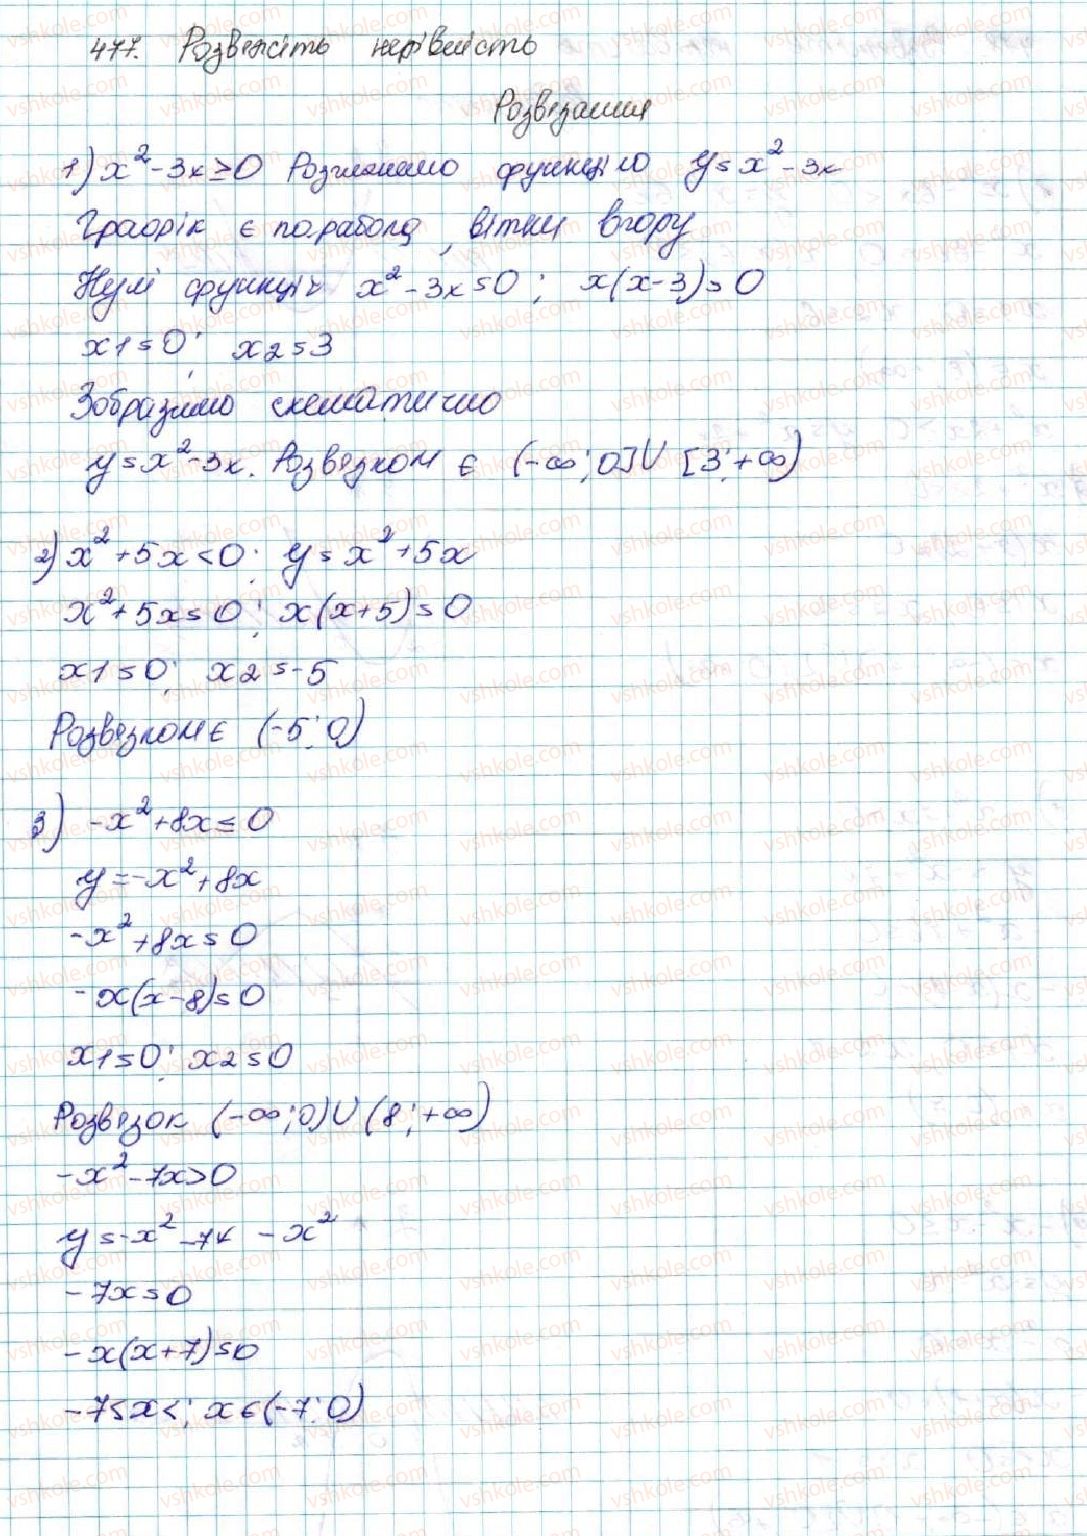 477. Розвяжіть нерівність
Розвязання
1) x² - 3x ≥ 0 Розглянемо функцію y = x² - 3x
Графік є парабола, вітки вгору
Нулі функції x² - 3x = 0; x(x-3) = 0
x1 = 0; x2 = 3
Зобразимо схематично
y = x² - 3x. Розвязком є (-∞; 0] U [3; +∞)
2) x² + 5x < 0; y = x² + 5x
x² + 5x = 0; x(x+5) = 0
x1 = 0; x2 = -5
Розвязком є (-5; 0)
3) -x² + 8x ≤ 0
y = -x² + 8x
-x² + 8x = 0
-x(x-8) = 0
x1 = 0; x2 = 0
Розвязок (-∞; 0) U (8; +∞)
-x² - 7x > 0
y = -x² - 7x - x²
-7x = 0
-x(x+7) = 0
-7 ≤ x <; x ∈ (-7; 0)